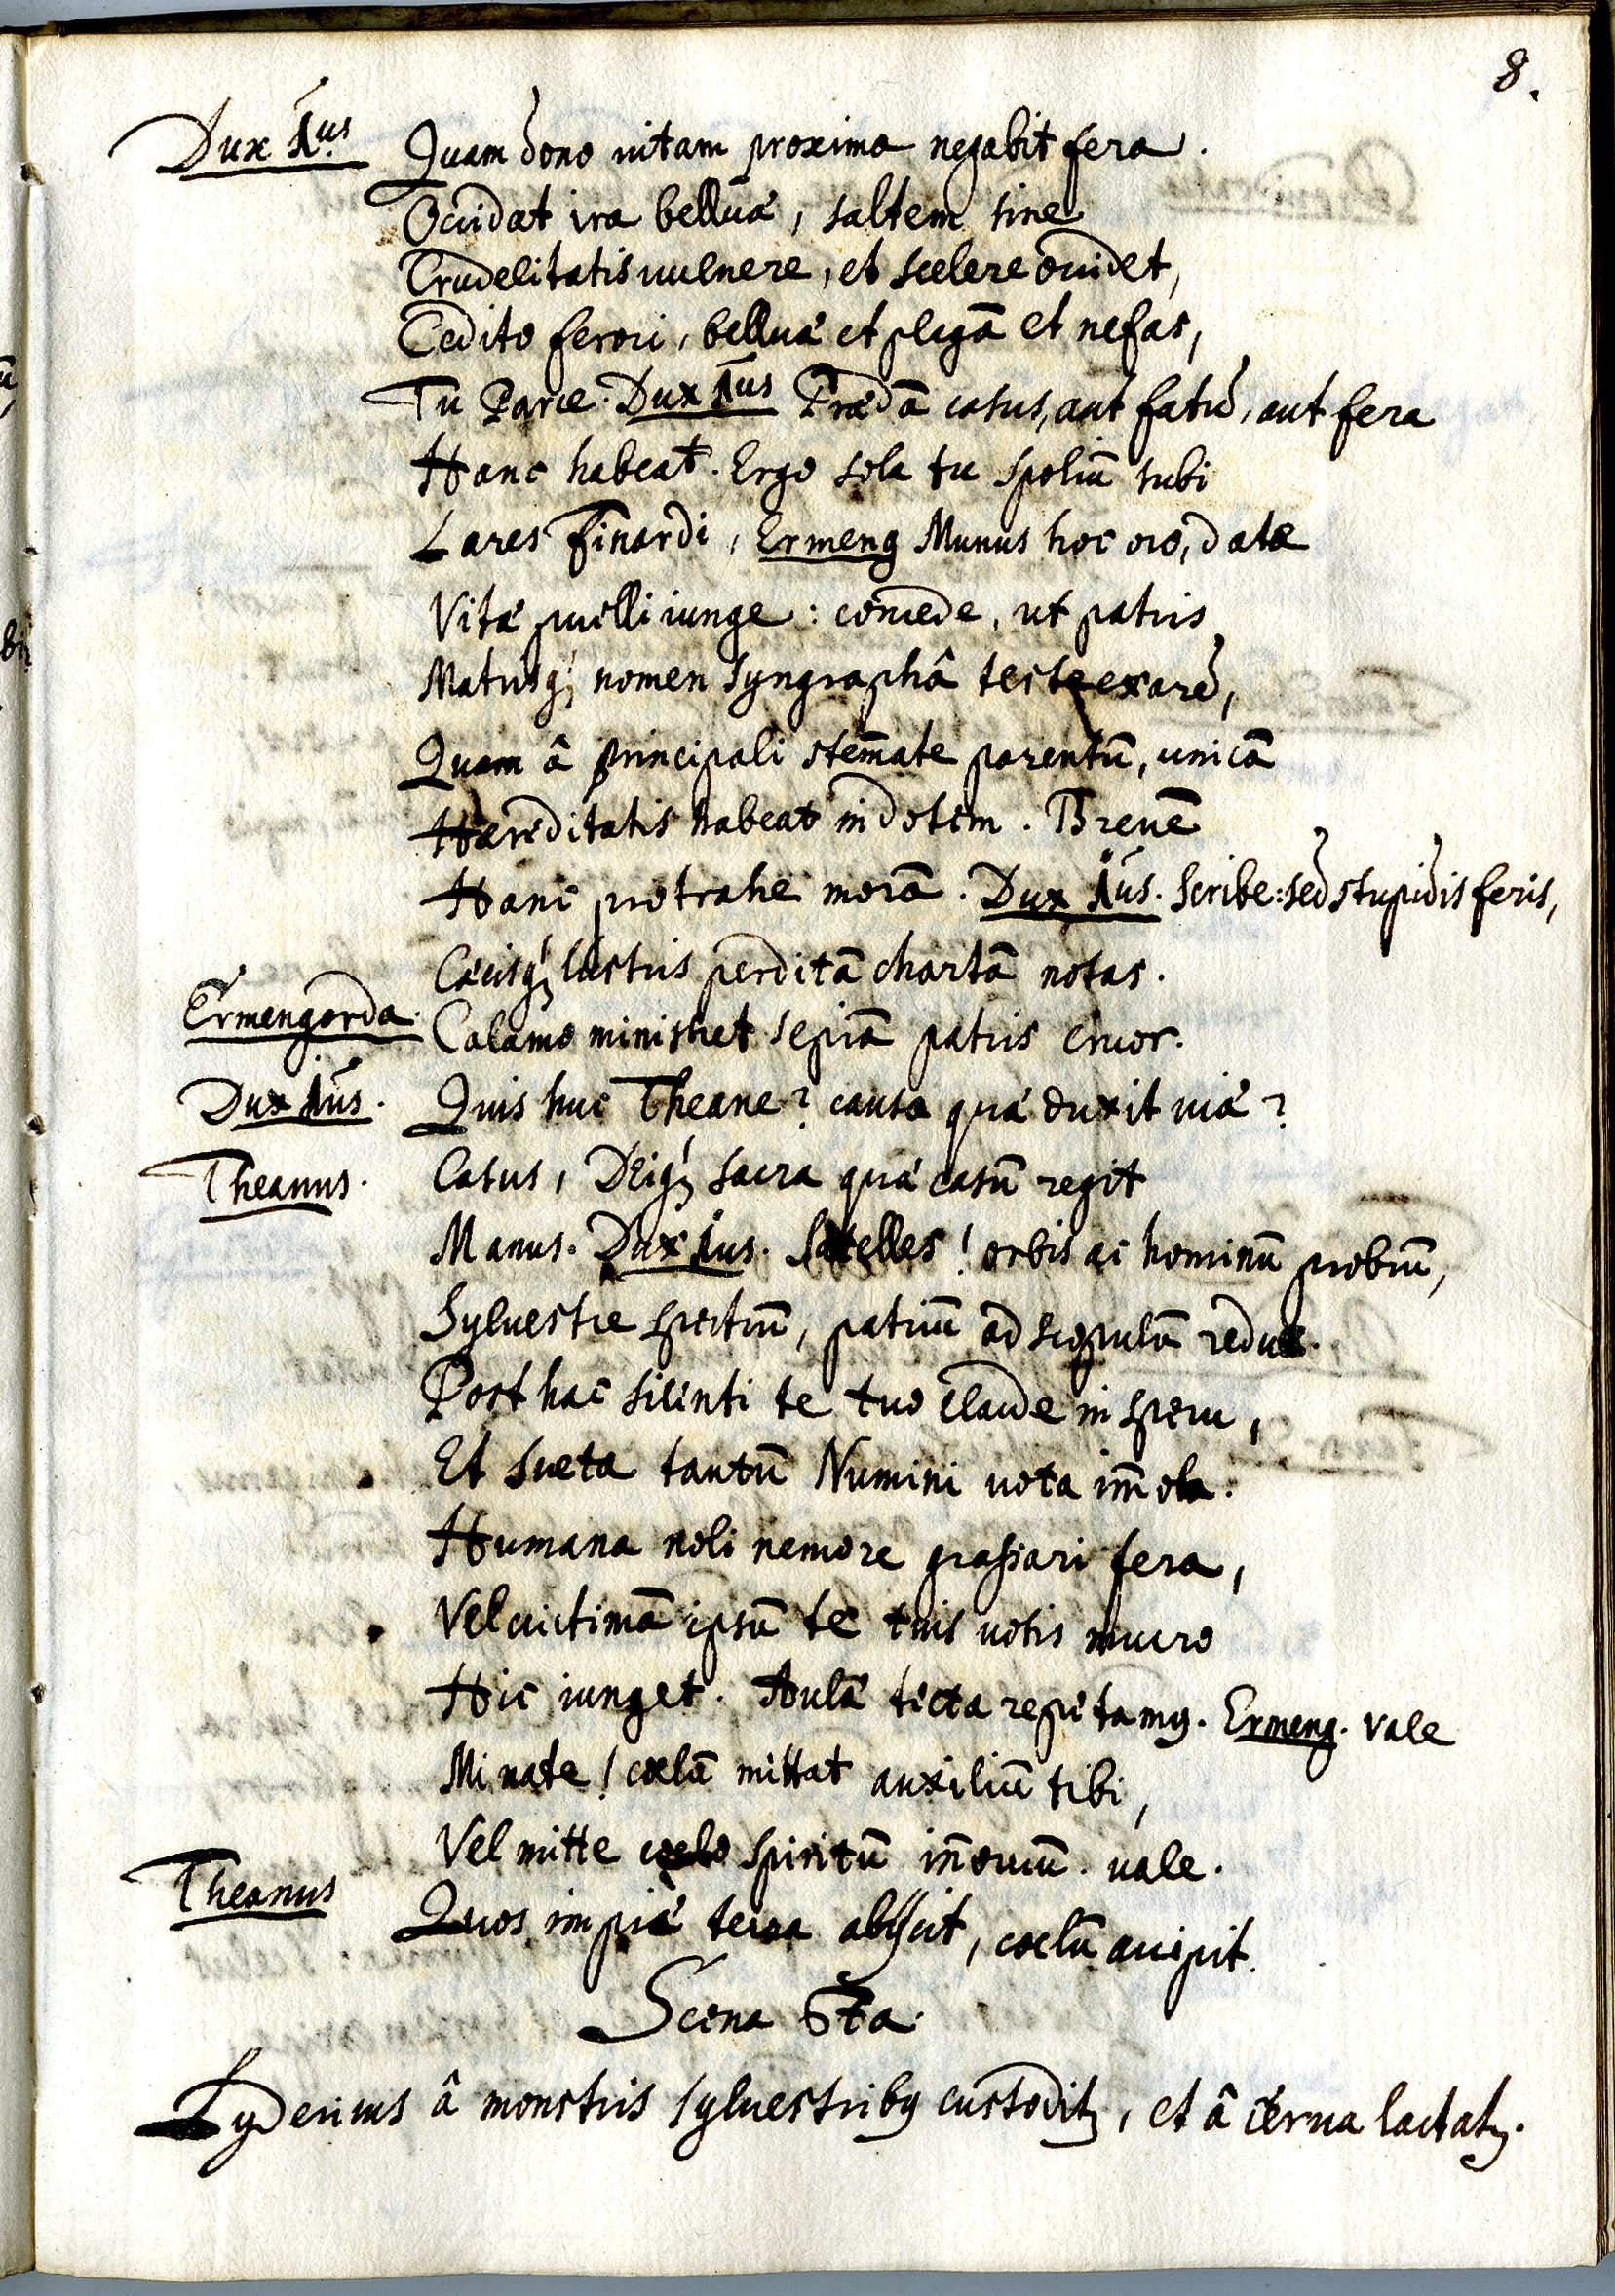 8.
Dux 1us Quam dono uitam proxima negabit fera.
Occidat ira belluá, saltem sine
Crudelitatis uulnere, et scelere occidet,
Cedito feroci, belluá et plagā et nefas,
Tu Parce. Dux 1us Prædā casus, aut fatū, aut fera
Hanc habeat. Ergo sola tu spoliū subi
Lares Finardi, Ermeng Munus hoc oro, data
Vitá puelli iunge: concede, ut patris
Matrisq; nomen syngraphâ teste exarē,
Quam â principali stem̄ate parentū, unicā
Hæreditatis habeat in dotem. Breuē
Hanc protrahe morā. Dux 1us. Scribe: sed stupidis feris,
Cæcisq; lustris perditā chartā notas.
Ermengarda. Calamo ministret sepiā patris cruor.
Dux 1us. Quis huc Theane? causa quá duxit uiá?
Theanus. Casus, Deiq; sacra quá casū regit
Manus. Dux 1us. Satelles! orbis ac hominū probrū,
Syluestre spectrū, patriū ad scopulū reduc.
Post hac silenti te tuo claude in specu,
Et sueta tantū Numini uota im̄ola.
Humana noli nemore grassari fera,
Vel uictimā ipsū te tuis uotis mucro
Hic iunget. Aulá tecta repetamus. Ermeng. Vale
Mi nate! coelū mittat auxiliū tibi,
Vel mitte coelo spiritū in̄ocuū. uale.
Theanus Quos impiá terra abijcit, coelū accipit.
Scena 5ta.
Lydericus â monstris syluestribus custoditus, et â cerua lactatus.